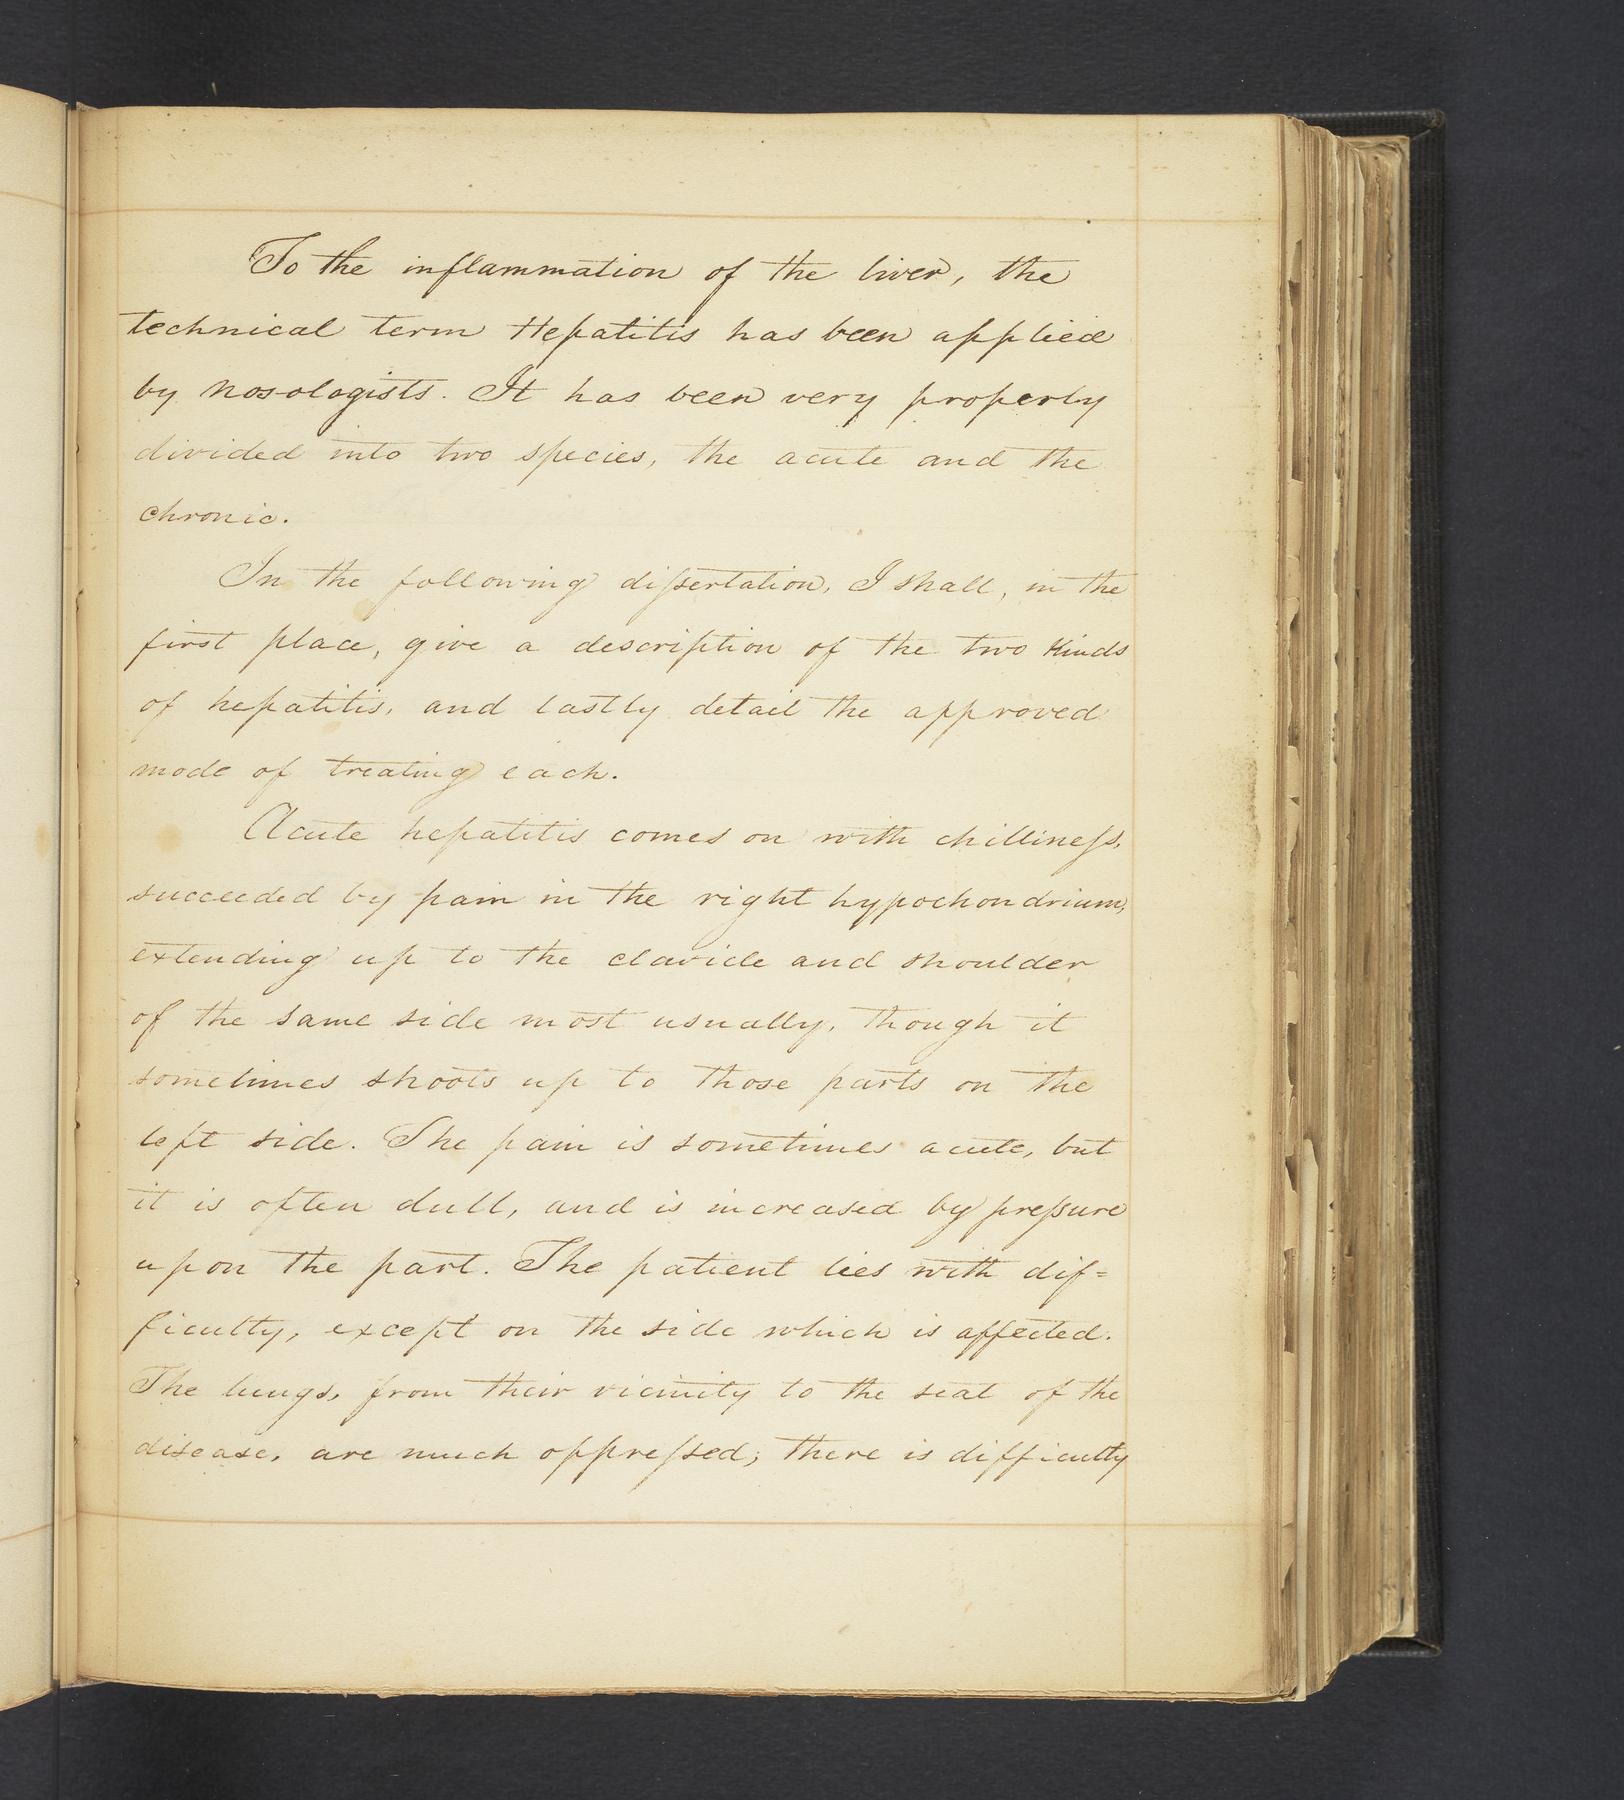 To the inflammation of the liver, the
technical term Hepatitis has been applied
by nosologists. It has been very properly
divided into two species, the acute and the
chronic.
In the following dissertation, I shall, in the
first place, give a description of the two kinds
of hepatitis, and lastly detail the approved
mode of treating each.
Acute hepatitis comes on with chilliness,
succeeded by pain in the right hypochondrium,
extending up to the clavicle and shoulder
of the same side most usually, though it
sometimes shoots up to those parts on the
left side. The pain is sometimes acute, but
it is often dull, and is increased by pressure
upon the part. The patient lies with dif=
ficulty, except on the side which is affected.
The lungs, from their vicinity to the seat of the
disease, are much oppressed; there is difficulty